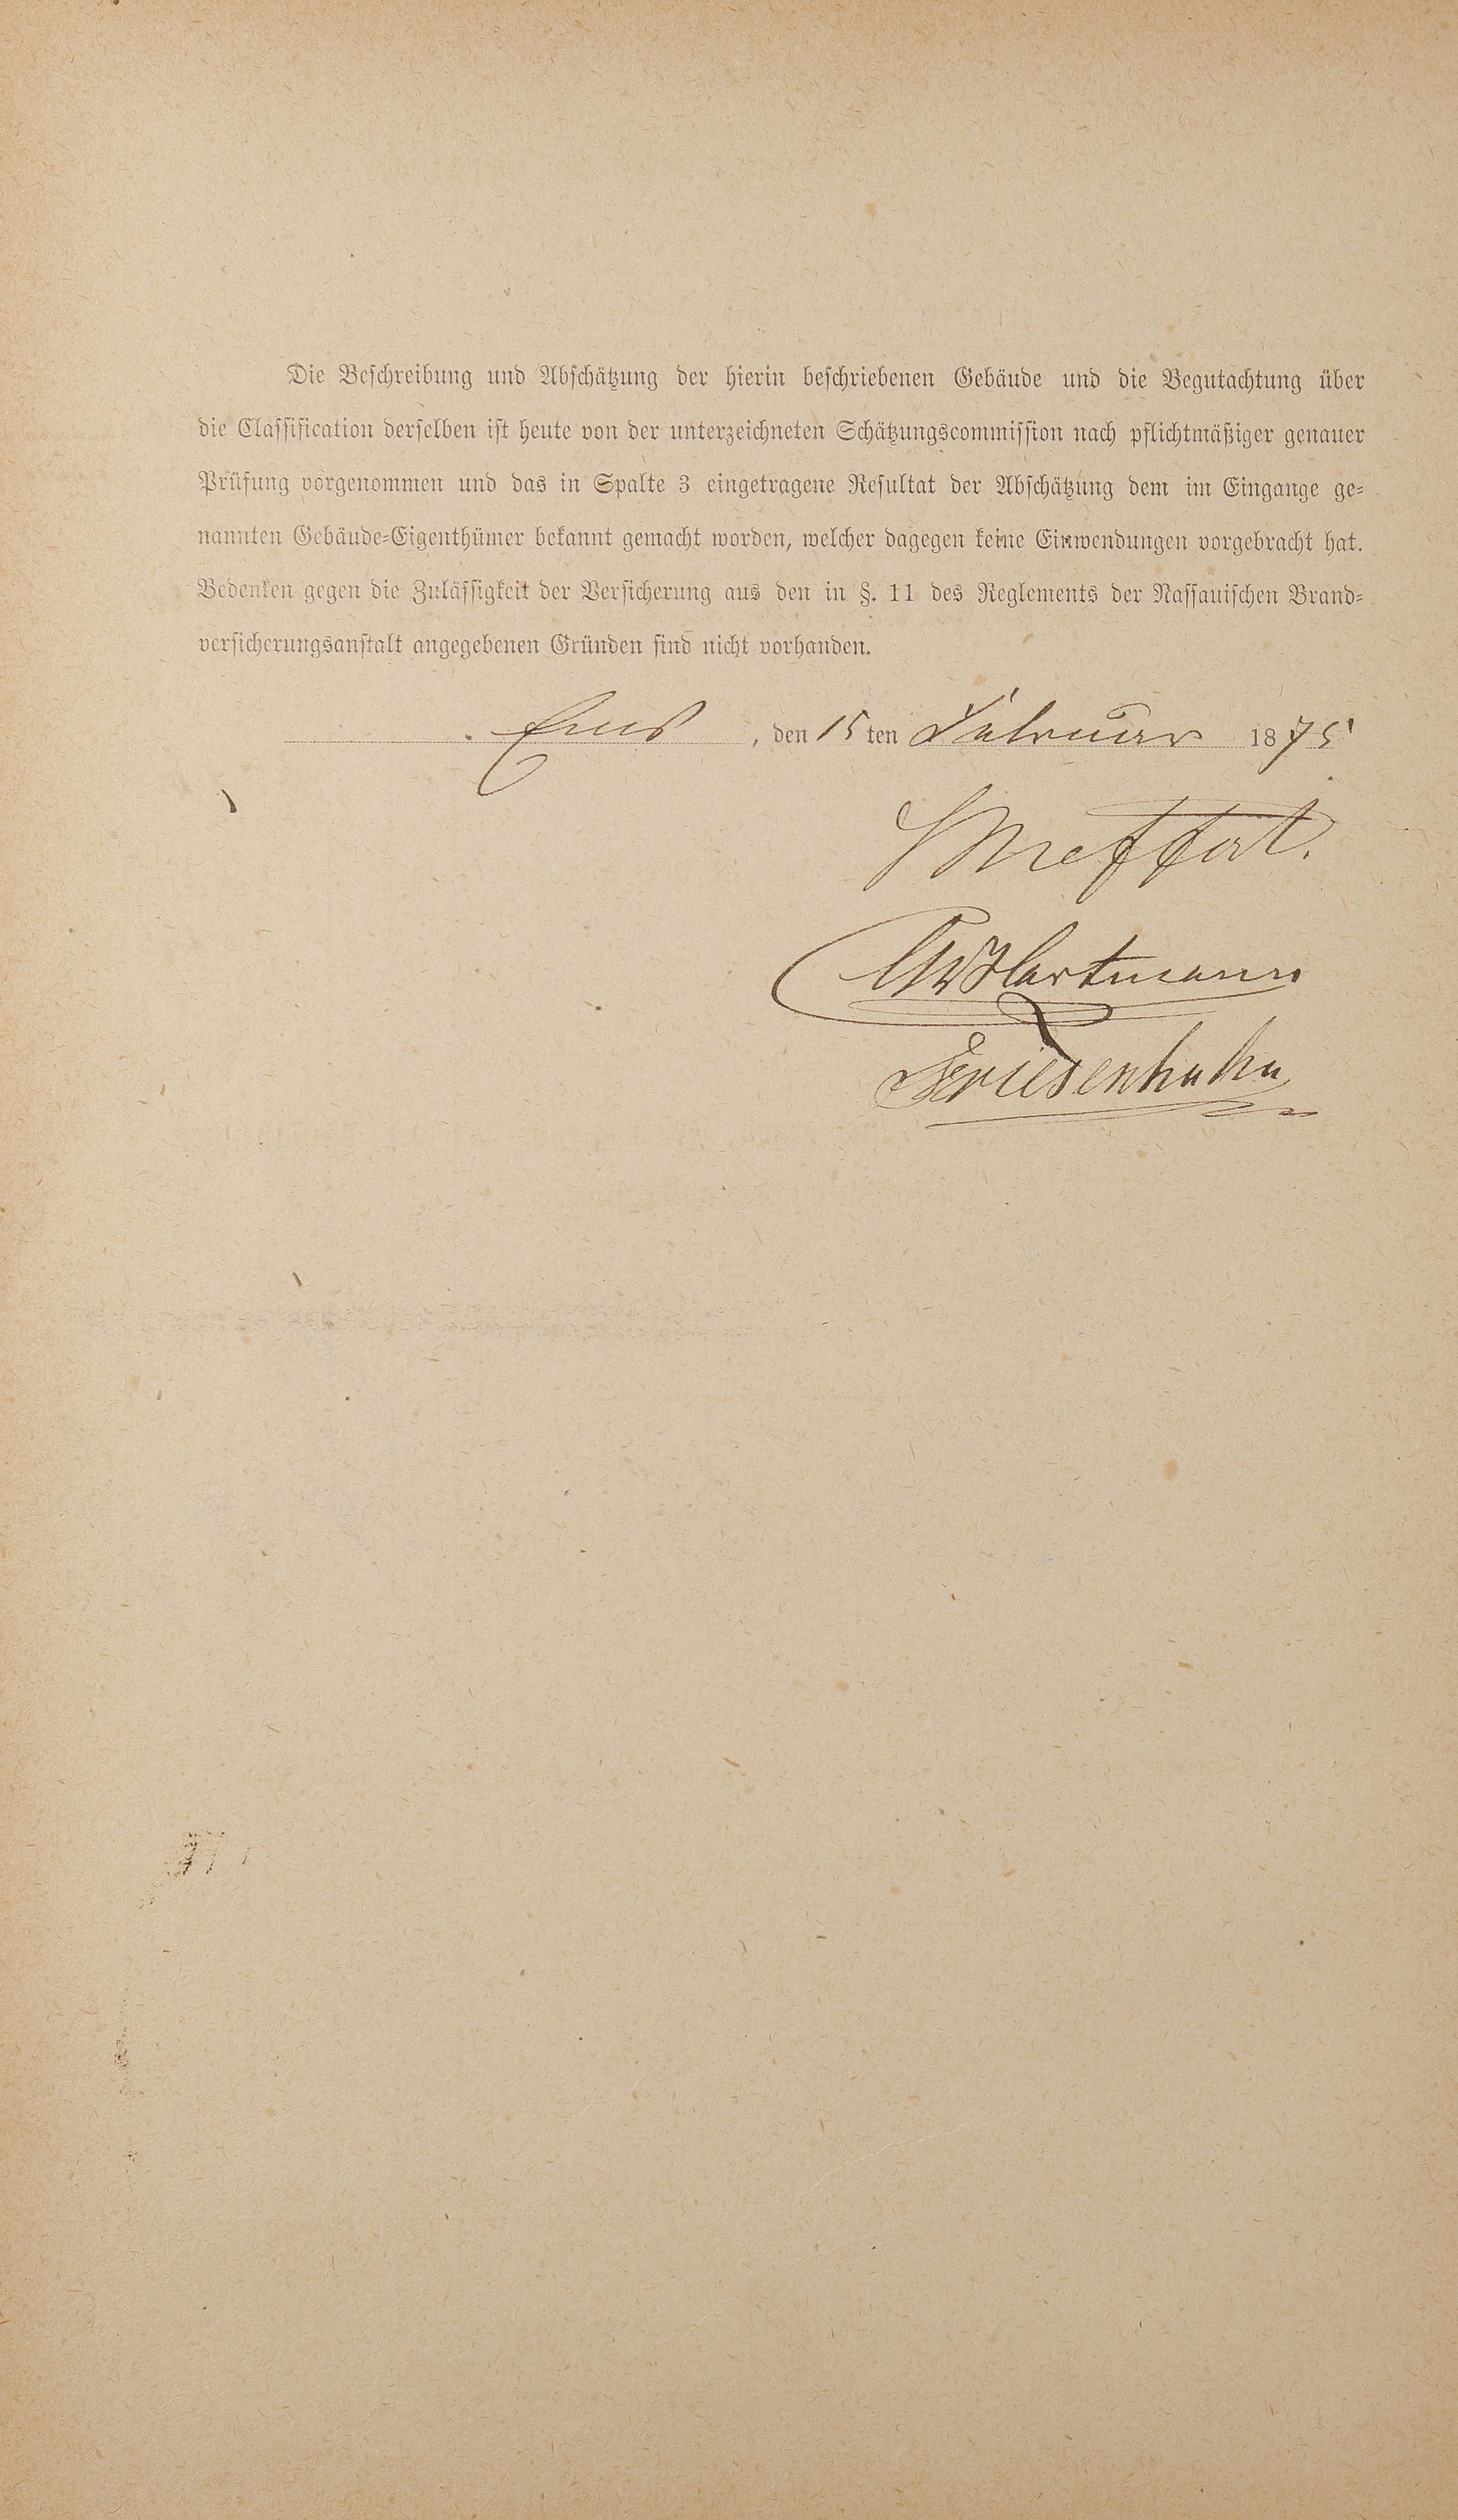 Die Beschreibung und Abschätzung der hierin beschriebenen Gebäude und die Begutachtung über
die Classification derselben ist heute von der unterzeichneten Schätzungscommission nach pflichtmäßiger genauer
Prüfung vorgenommen und das in Spalte 3 eingetragene Resultat der Abschätzung dem im Eingange ge-
nannten Gebäude-Eigenthümer bekannt gemacht worden, welcher dagegen keine Einwendungen vorgebracht hat.
Bedenken gegen die Zulässigkeit der Versicherung aus den in §. 11 des Reglements der Nassauischen Brand-
versicherungsanstalt angegebenen Gründen sind nicht vorhanden.
Ems, den 15ten Februar 1875
Meffert.
Hartmann
Friesenhahn